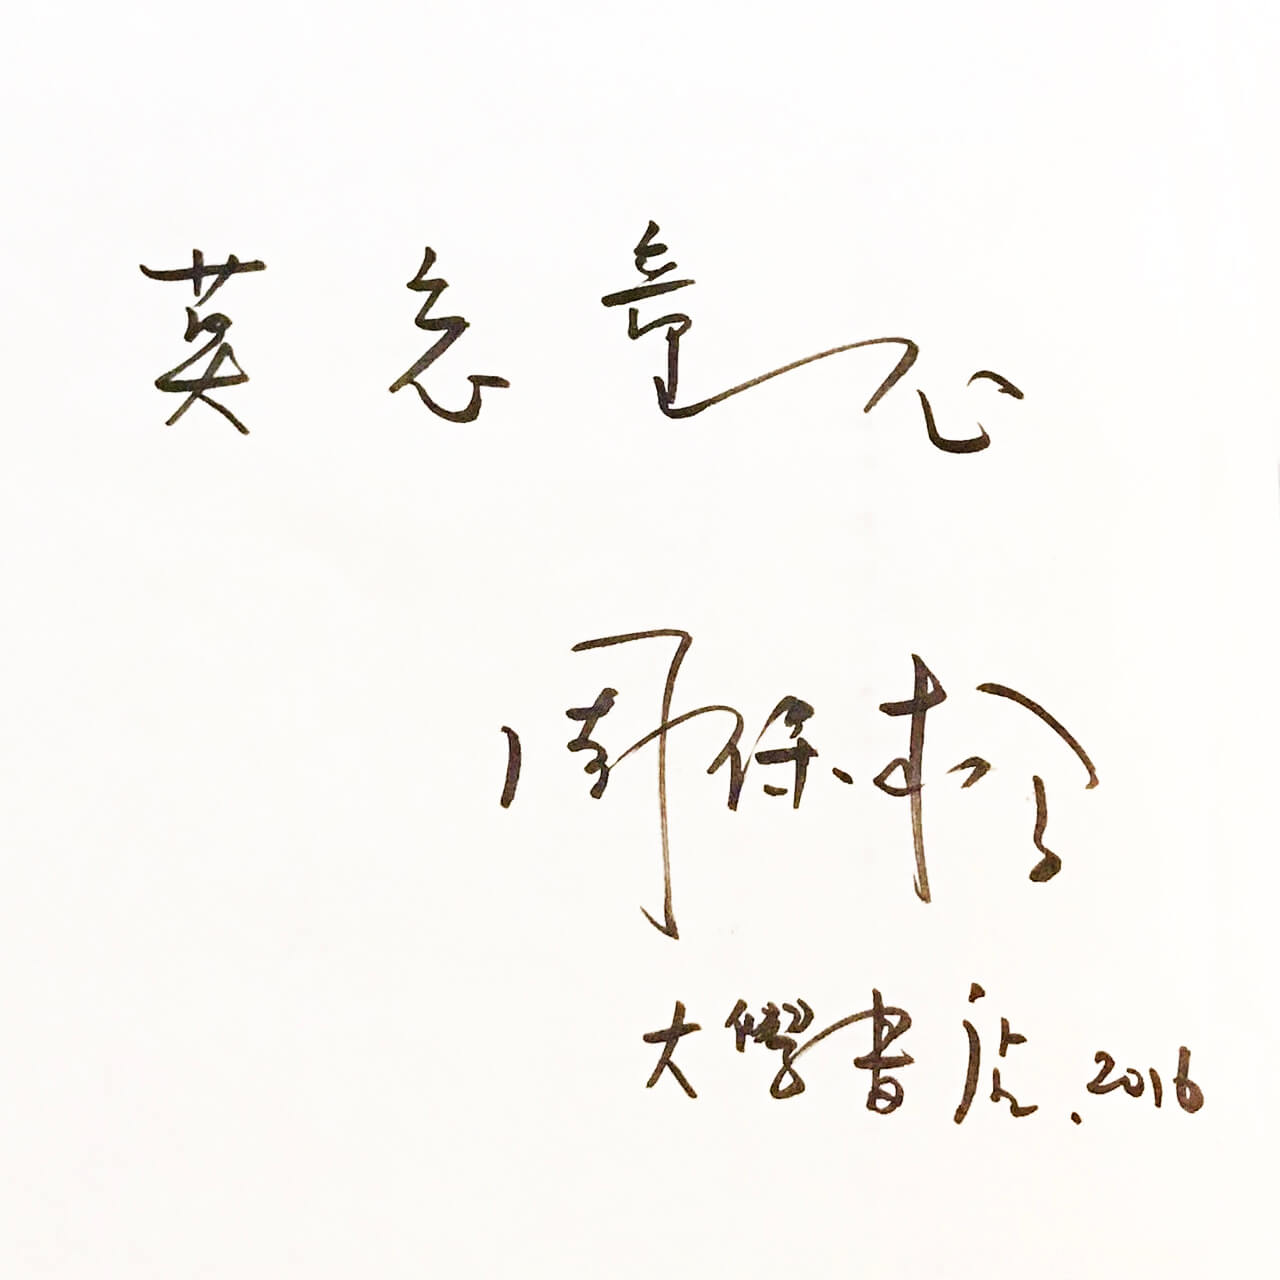 莫忘童心
周保松
大學書店.2016